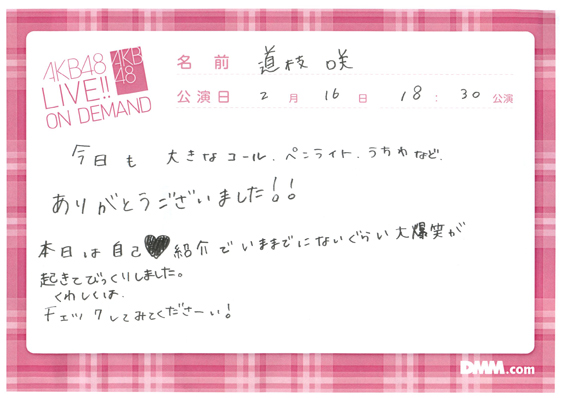 AKB48
LIVE!!
ON DEMAND
AKB
48
名前 道枝 咲
公演日 2月 16日 18:30公演
今日も 大きなコール、ペンライト、うちわなど、
ありがとうございました!!
本日は自己♥紹介でいままでにないぐらい大爆笑が
起きてびっくりしました。
くわしくは、
チェックしてみてくださーい!
DMM.com